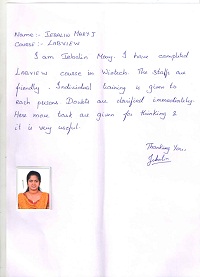 Name:- Jebalin Mary J
Course:- Labview
I am Jebalin Mary. I have completed
Labview course in Wiztech. The staffs are
friendly. Individual training is given to
each persons. Doubts are clarified immediately.
Here more task are given for thinking &
it is very useful.
Thanking You,
Jebalin